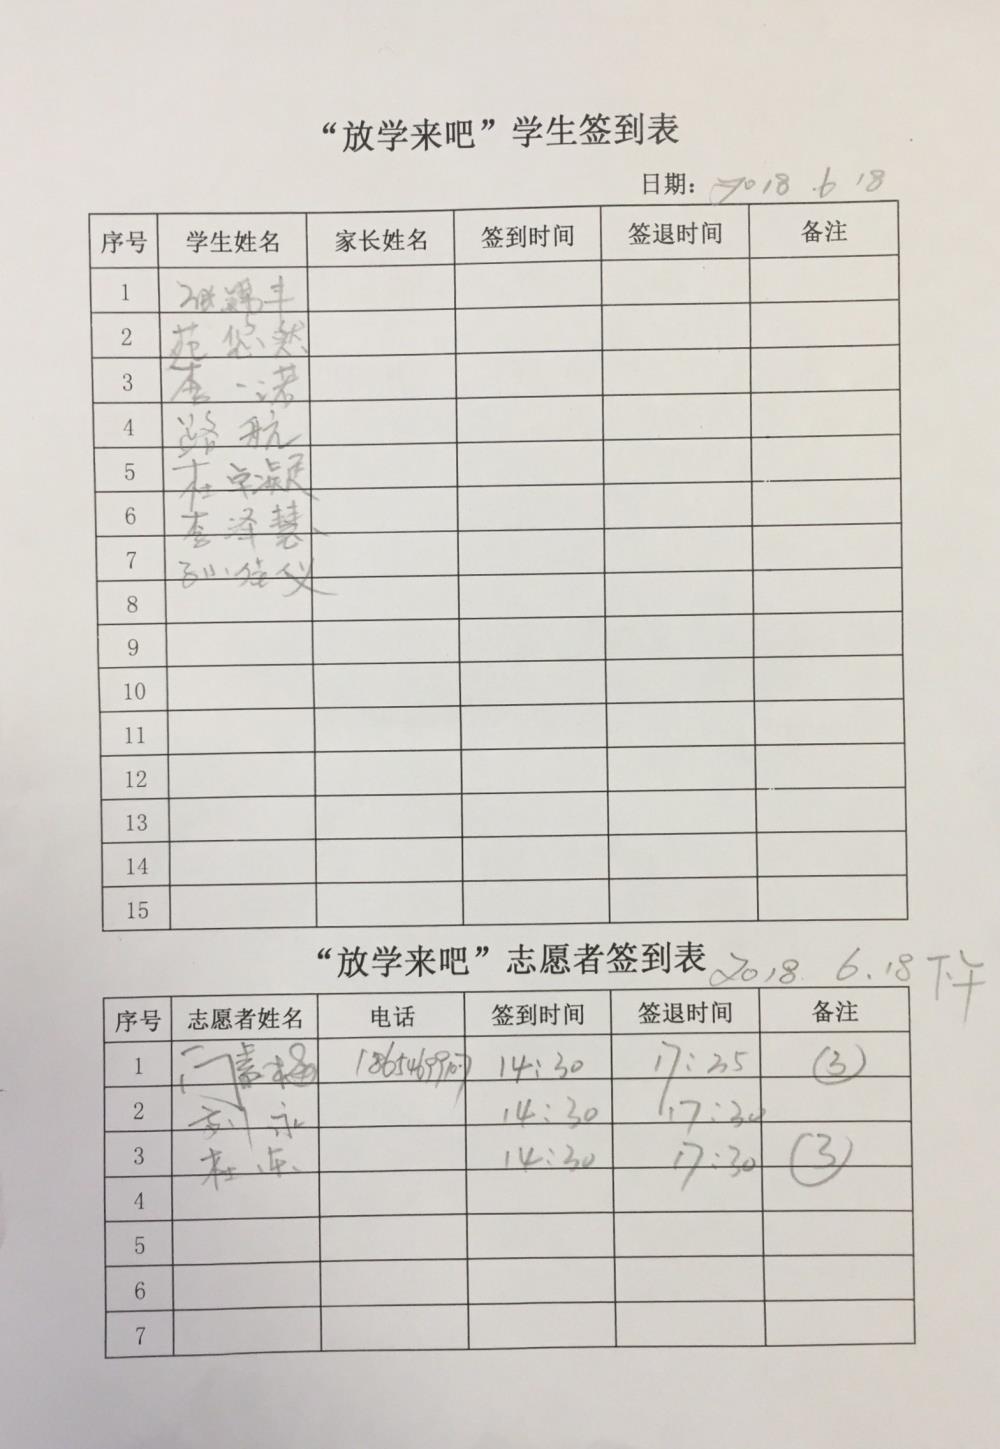 “放学来吧”学生签到表
日期: 2018.6 18
序号 学生姓名 家长姓名 签到时间 签退时间 备注
1
2 范悠然
3 李一诺
4 路航
5 杜学凝
6 李泽慧
7 孙佳仪
8
9
10
11
12
13
14
15
“放学来吧”志愿者签到表 2018. 6.18下午
序号 志愿者姓名 电话 签到时间 签退时间 备注
1 14:30 17:35 (3)
2 刘永 14:30 17:30
3 杜乐 14:30 17:30 (3)
4
5
6
7